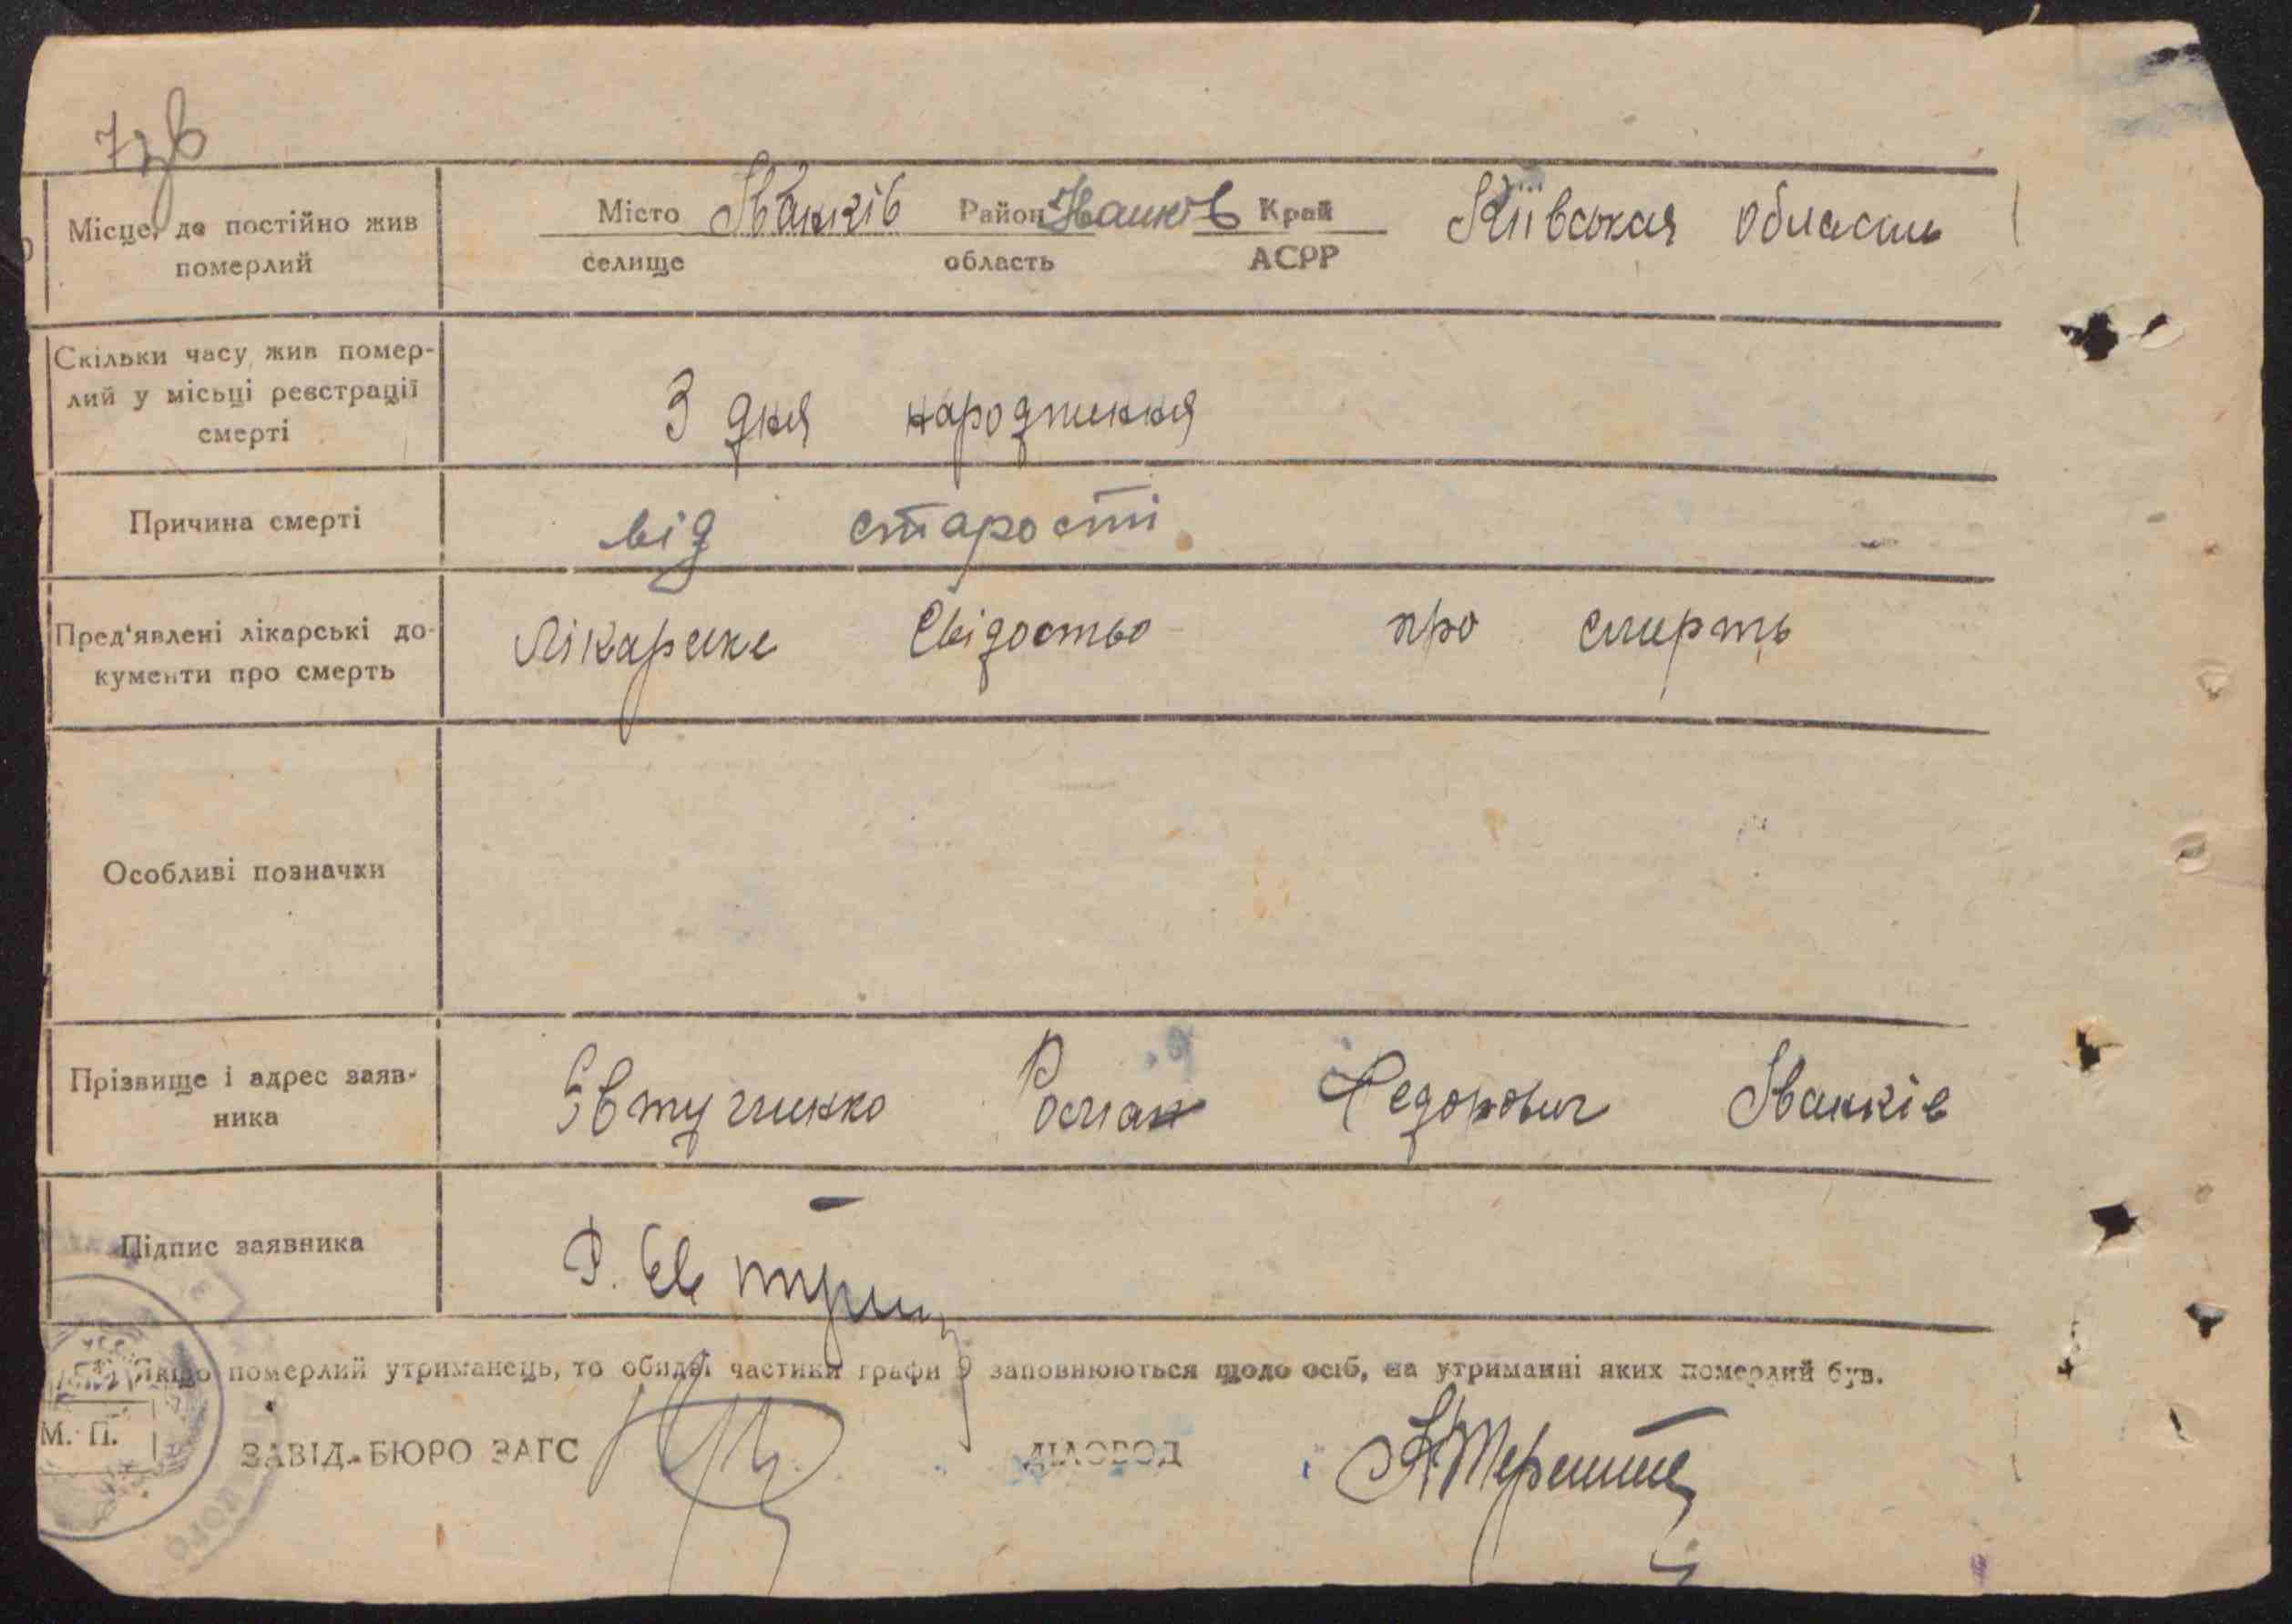 7зв
Місце, де постійно жив померлий
Місто Іванків Район Іванків Край Київская область
селище область АСРР
Скільки часу жив помер-
лий у місьці реєстрації
смерті
З дня народження
Причина смерті
від старості
Пред'явлені лікарські до-
кументи про смерть
Лікарске Свідоство про смерть
Особливі позначки
Прізвище і адрес заяв-
ника
Євтушинко Роман Федорович Іванків
Підпис заявника
Р. Евтуши
Якщо померлий утриманець, то обидві частини графи 9 заповнюються щодо осіб, на утриманні яких померлий був.
М. П.
ЗАВІД. БЮРО ЗАГС
ДІЛОВОД